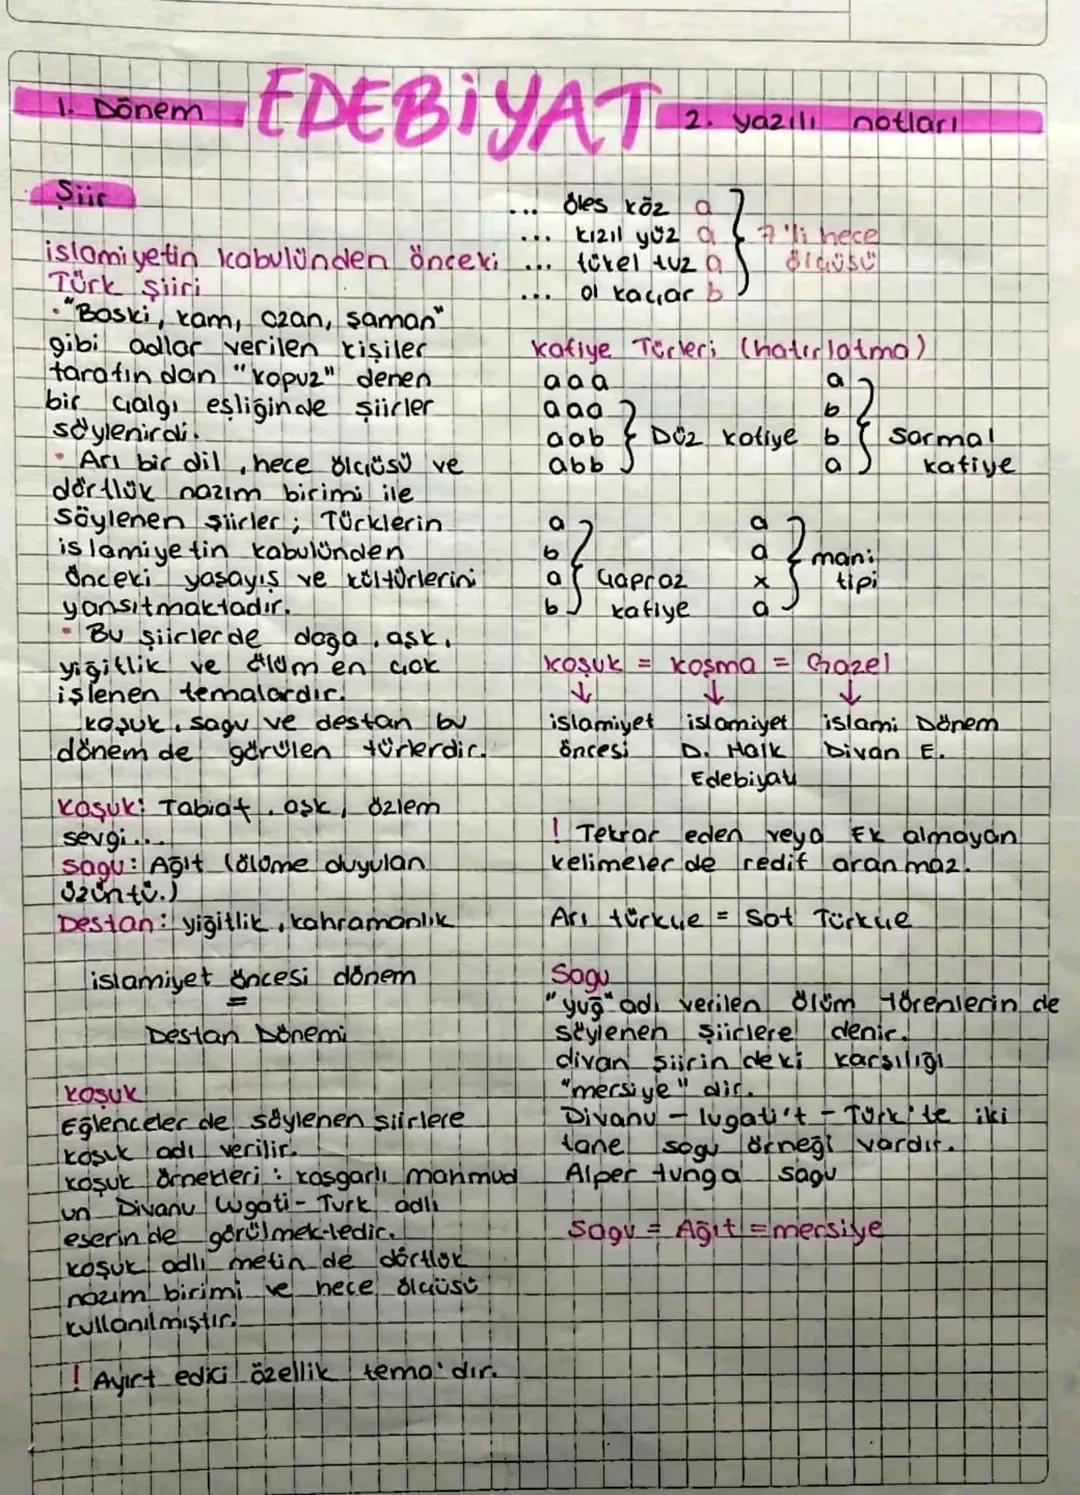 1. Dönem EDEBİYAT 2. yazılı notları
Şiir
islamiyetin kabulünden önceki
Türk şiiri
• "Baski, kam, ozan, şaman"
gibi adlar verilen kişiler
tarafın dan "kopuz" denen
bir çalgı eşliğinde şiirler
söylenirdi.
• Arı bir dil, hece ölçüsü ve
dörtlük nazım birimi ile
söylenen şiirler; Türklerin
islamiyetin kabulünden
önceki yaşayış ve kültürlerini
yansıtmaktadır.
• Bu şiirlerde doğa, aşk,
yiğitlik ve ölüm en çok
işlenen temalardır.
koşuk, sagu ve destan bu
dönem de görülen türlerdir.
Koşuk: Tabiat, aşk, özlem
sevgi...
sagu: Ağıt (ölüme duyulan
üzüntü.)
Destan: yiğitlik, kahramanlık
islamiyet öncesi dönem
=
Destan Dönemi
koşuk
Eğlenceler de söylenen şiirlere
koşuk adı verilir.
koşuk örnekleri: kaşgarlı mahmud
un Divanu Lugati-Turk adlı
eserin de görülmektedir.
koşuk adlı metin de dörtlük
nazım birimi ve hece ölçüsü
kullanılmıştır.
! Ayırt edici özellik tema'dır.
... öles köz a
... kızıl yüz a
... tükel tuz a
... ol kaçar b
7'li hece
ölçüsü
kafiye Türleri (hatırlatma)
aaa
aaa
aab
abb
Düz kafiye
a
b
b
a
Sarmal
kafiye
a
b
a
b
Çapraz
kafiye
a
a
x
a
mani
tipi
koşuk = koşma = Gazel
↓ ↓ ↓
islamiyet islamiyet islami Dönem
öncesi D. Halk Divan E.
Edebiyatı
! Tekrar eden veya Ek almayan
kelimeler de redif aranmaz.
Arı türkçe = Saf Türkçe
Sagu
"yuğ" adı verilen ölüm törenlerin de
söylenen şiirlere denir.
divan şiirin deki karşılığı
"mersiye" dir.
Divanu - lugati't - Türk'te iki
tane sagu örneği vardır.
Alper tunga sagu
Sagu = Ağıt = mersiye